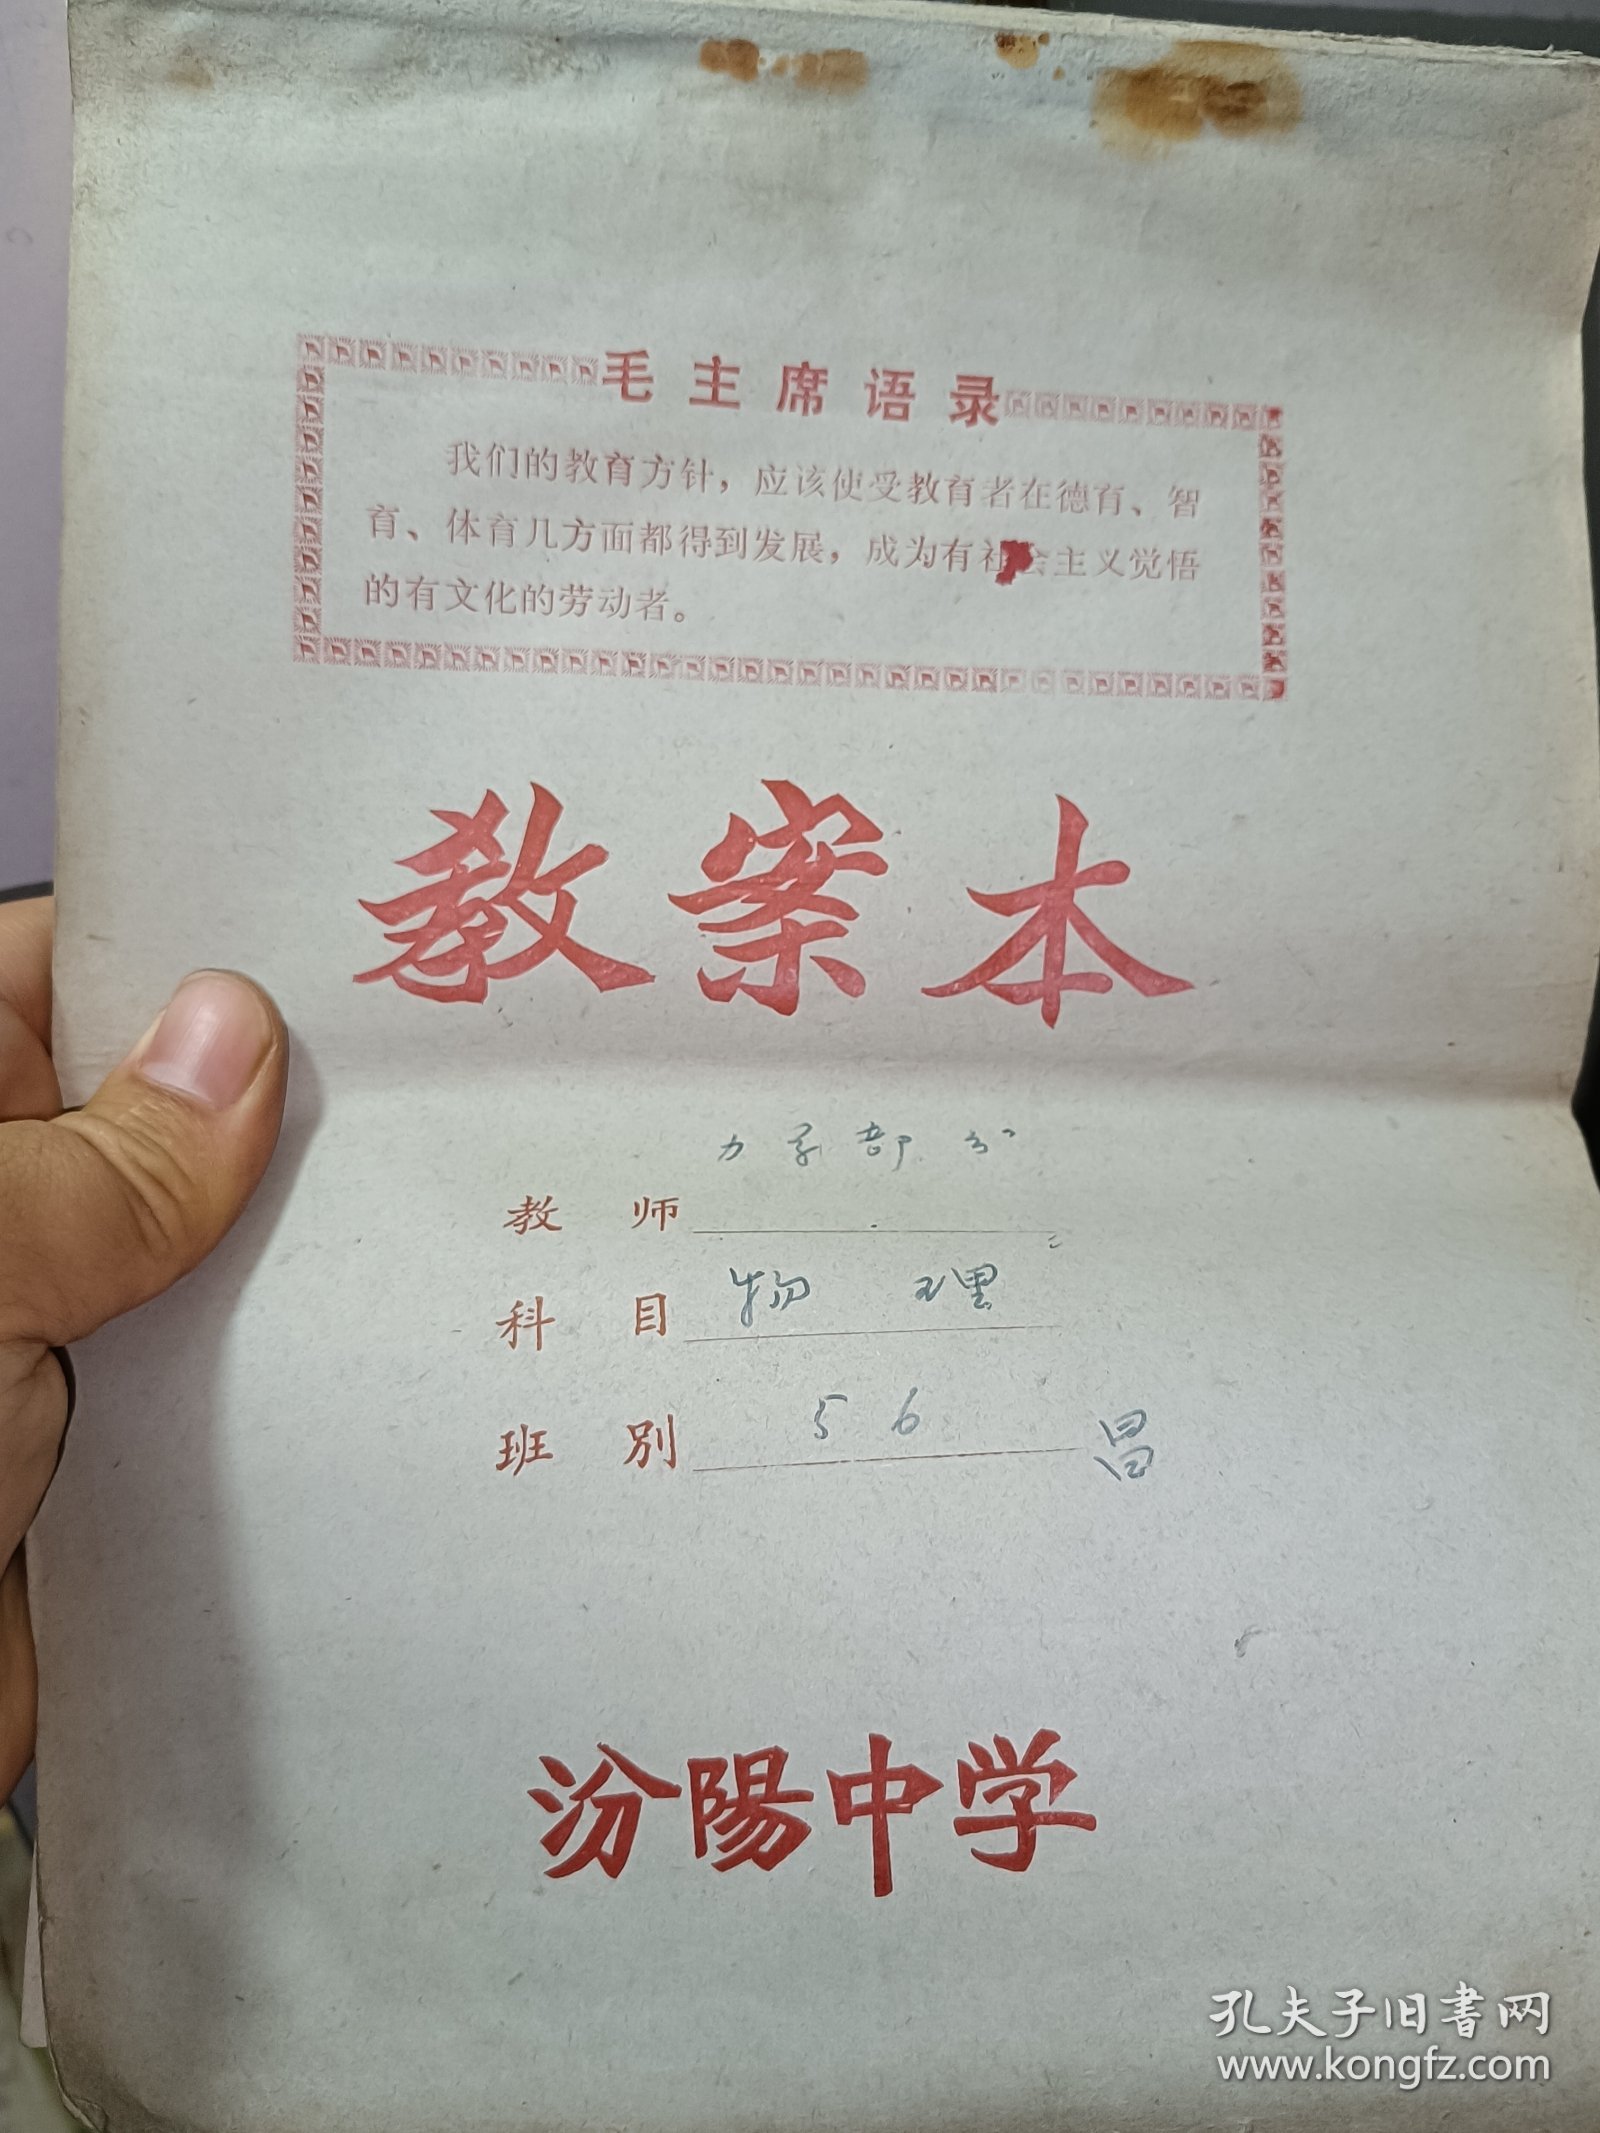 毛主席语录
我们的教育方针，应该使受教育者在德育、智
育、体育几方面都得到发展，成为有社会主义觉悟
的有文化的劳动者。
教案本
力学部分
教师
科目 物理
班别 56
昌
汾陽中学
孔夫子旧書网
www.kongfz.com